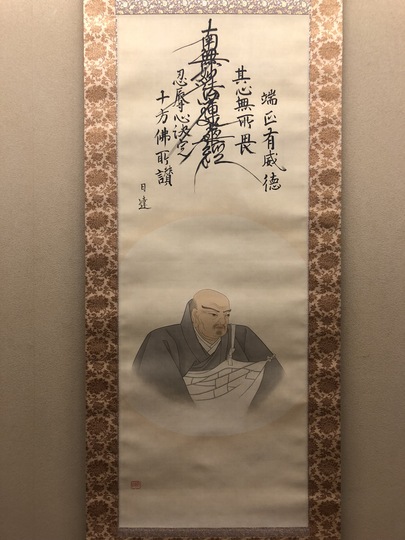 端正有威德
其心無所畏
南無妙法蓮華經
忍辱心決定
十方佛所讚
日達